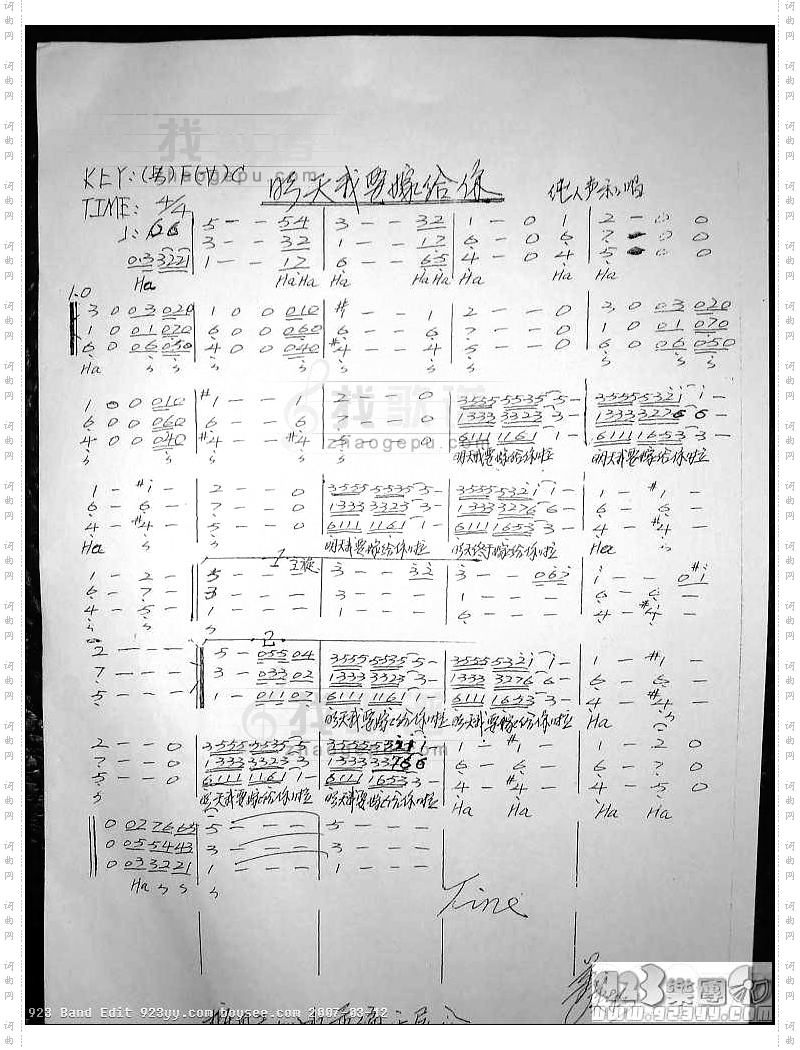 明天我要嫁给你
KEY:(男)F(女)C
纯人声和唱
TIME: 4/4
5 - - 54 | 3 - - 32 | 1 - 0 1 | 2 - 0 0
3 - - 32 | 1 - - 17 | 6 - 0 6 | 7 - 0 0
03 3221 | 1 - - 17 | 6 - - 65 | 4 - 0 4 | 5 - 0 0
Ha HaHa HaHa Ha Ha
3 0 03 020 | 1 0 0 010 | #1 - - 1 | 2 - - 0 | 3 0 03 020
1 0 01 070 | 6 0 0 060 | 6 - - 6 | 7 - - 0 | 1 0 01 070
6 0 06 050 | 4 0 0 040 | #4 - - 4 | 5 - - 0 | 6 0 06 050
Ha
1 0 0 010 | #1 - - 1 | 2 - - 0 | 3535 5535 5 - | 3555 5321 1 -
6 0 0 060 | 6 - - 6 | 7 - - 0 | 1333 3323 3 - | 1333 3276 6 -
4 0 0 040 | #4 - - #4 | 5 - - 0 | 6111 1161 1 - | 6111 1653 3 -
明天我要嫁给你啦 明天我要嫁给你啦
1 - #1 - | 2 - - 0 | 3555 5535 5 - | 3555 5321 1 - | 1 - #1 -
6 - 6 - | 7 - - 0 | 1333 3323 3 - | 1333 3276 6 - | 6 - 6 -
4 - #4 - | 5 - - 0 | 6111 1161 1 - | 6111 1653 3 - | 4 - #4 -
Ha 明天我要嫁给你啦 明天终于嫁给你啦 Ha
1 主旋
1 - 2 - | 5 - - - | 3 - - 32 | 3 - - 062 | 1 - - 0#1
6 - 7 - | 3 - - - | 3 - - - | 1 - - - | 6 - 6 -
4 - 5 - | 1 - - - | 1 - - - | 6 - - - | 4 - #4 -
2
2 - - - | 5 - 055 04 | 3555 5535 5 - | 3555 5321 1 - | 1 - #1 -
7 - - - | 3 - 033 02 | 1333 3323 3 - | 1333 3276 6 - | 6 - 6 -
5 - - - | 1 - 011 07 | 6111 1161 1 - | 6111 1653 3 - | 4 - #4 -
明天我要嫁给你啦 明天我要嫁给你啦 Ha
2 - - 0 | 3555 5535 5 - | 3555 5321 1 - | 1 - #1 - | 1 - 2 0
7 - - 0 | 1333 3323 3 - | 1333 3276 6 | 6 - 6 - | 6 - 7 0
5 - - 0 | 6111 1161 1 - | 6111 1653 3 - | 4 - #4 - | 4 - 5 0
明天我要嫁给你啦 明天我要嫁给你啦 Ha Ha Ha Ha
0 027665 | 5 - - - | 5 - - -
0 055443 | 3 - - - | 3 - - -
0 033221 | 1 - - - | 1 - - -
Ha
Fine
923樂團
www.923yy.com
923 Band Edit 923yy.com boysee.com 2007-03-12
找歌谱
zhaogepu.com
词曲网